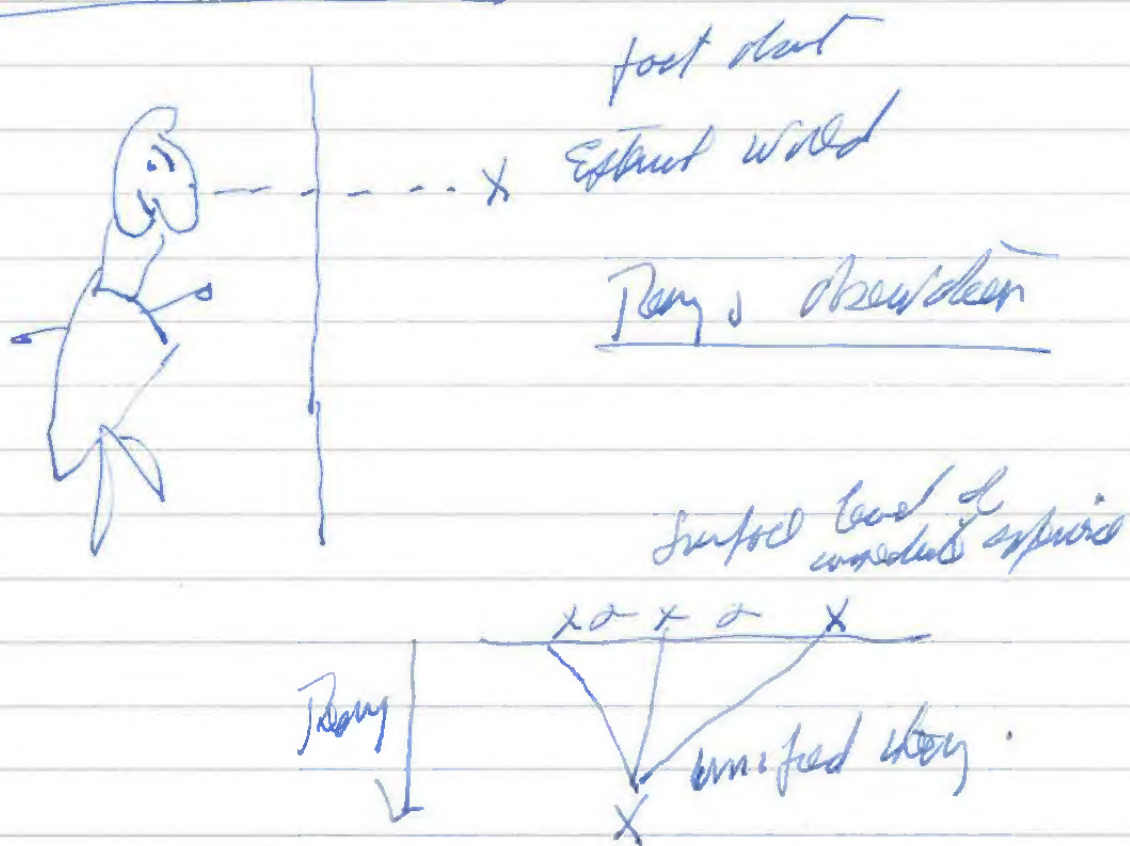 fact about
External World
Theory & observation
Surface level of
immediate experience
x o x o x
Theory
unified theory.
X
X